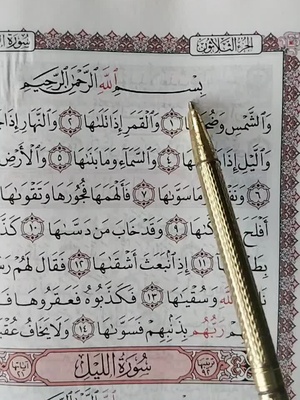 الجزء الثلاثون سورة
بِسْمِ اللَّهِ الرَّحْمَٰنِ الرَّحِيمِ
وَالشَّمْسِ ١ وَالْقَمَرِ إِذَا تَلَىٰهَا ٢ وَالنَّهَارِ إِذَا
وَالَّيْلِ إِذَا ٤ وَالسَّمَآءِ وَمَا بَنَىٰهَا ٥ وَالْأَرْضِ
٦ مَا سَوَّىٰهَا ٧ فَأَلْهَمَهَا فُجُورَهَا وَتَقْوَىٰهَا
أَفْلَحَ ٩ وَقَدْ خَابَ مَن دَسَّىٰهَا ١٠
١١ إِذِ انۢبَعَثَ أَشْقَىٰهَا ١٢ فَقَالَ لَهُمْ
اللَّهِ وَسُقْيَٰهَا ١٣ فَكَذَّبُوهُ فَعَقَرُوهَا
رَبُّهُم بِذَنۢبِهِمْ فَسَوَّىٰهَا ١٤ وَلَا يَخَافُ
سُورَةُ اللَّيْلِ